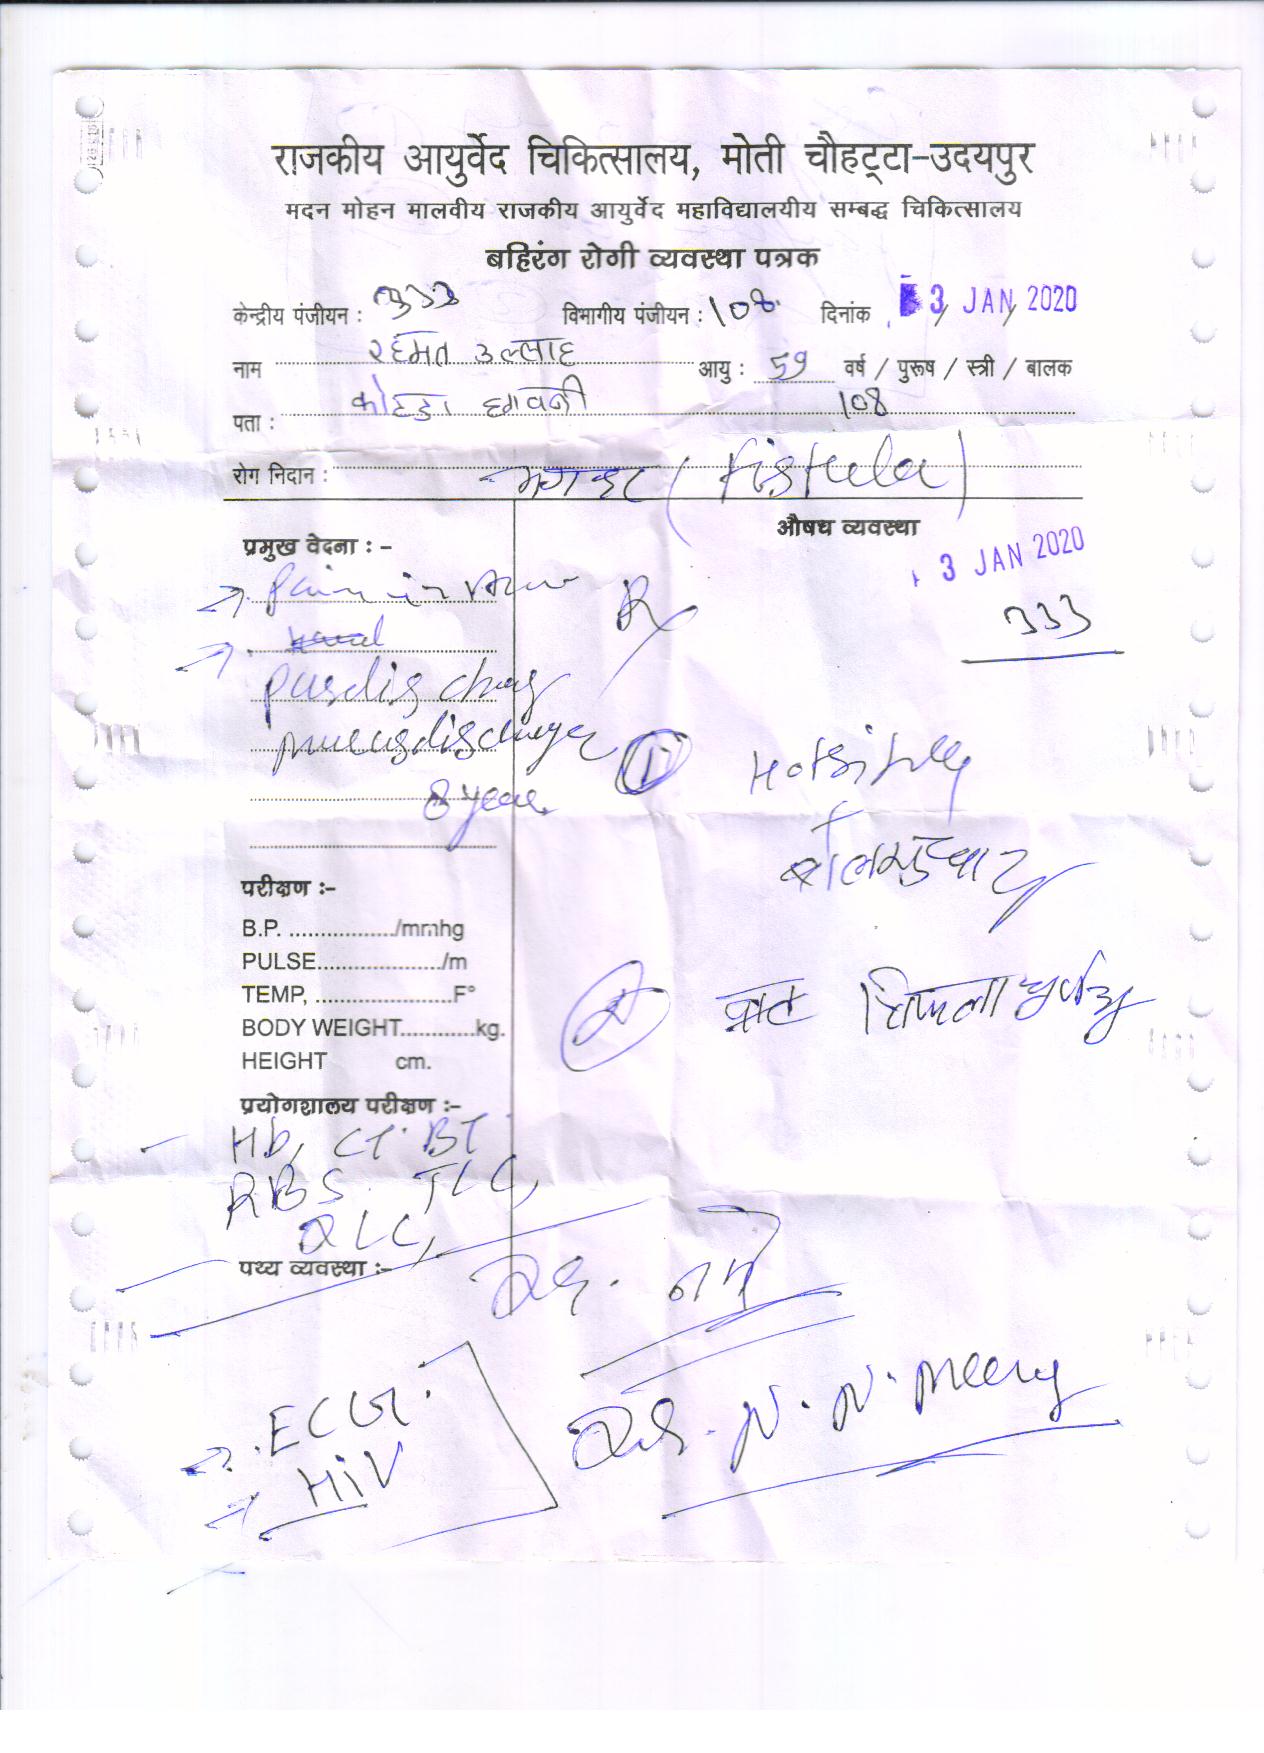 राजकीय आयुर्वेद चिकित्सालय, मोती चौहट्टा-उदयपुर
मदन मोहन मालवीय राजकीय आयुर्वेद महाविद्यालयीय सम्बद्ध चिकित्सालय
बहिरंग रोगी व्यवस्था पत्रक
केन्द्रीय पंजीयन : 333 विभागीय पंजीयन : 108 दिनांक 3 JAN 2020
नाम रहमत उल्लाह आयु : 59 वर्ष / पुरूष / स्त्री / बालक
पता : 108
रोग निदान : भगन्दर (Fistula)
औषध व्यवस्था
प्रमुख वेदना : -
3 JAN 2020
Pain in
Rx
333
pus discharge
mucus discharge
8 year
1
Hot Sitz
2 त्रिफला चूर्ण
परीक्षण :-
B.P. ................/mmhg
PULSE...................../m
TEMP, ......................F°
BODY WEIGHT............kg.
HEIGHT cm.
प्रयोगशालय परीक्षण :-
Hb, CT. BT
RBS. TLC,
DLC,
पथ्य व्यवस्था :-
ECG.
HiV